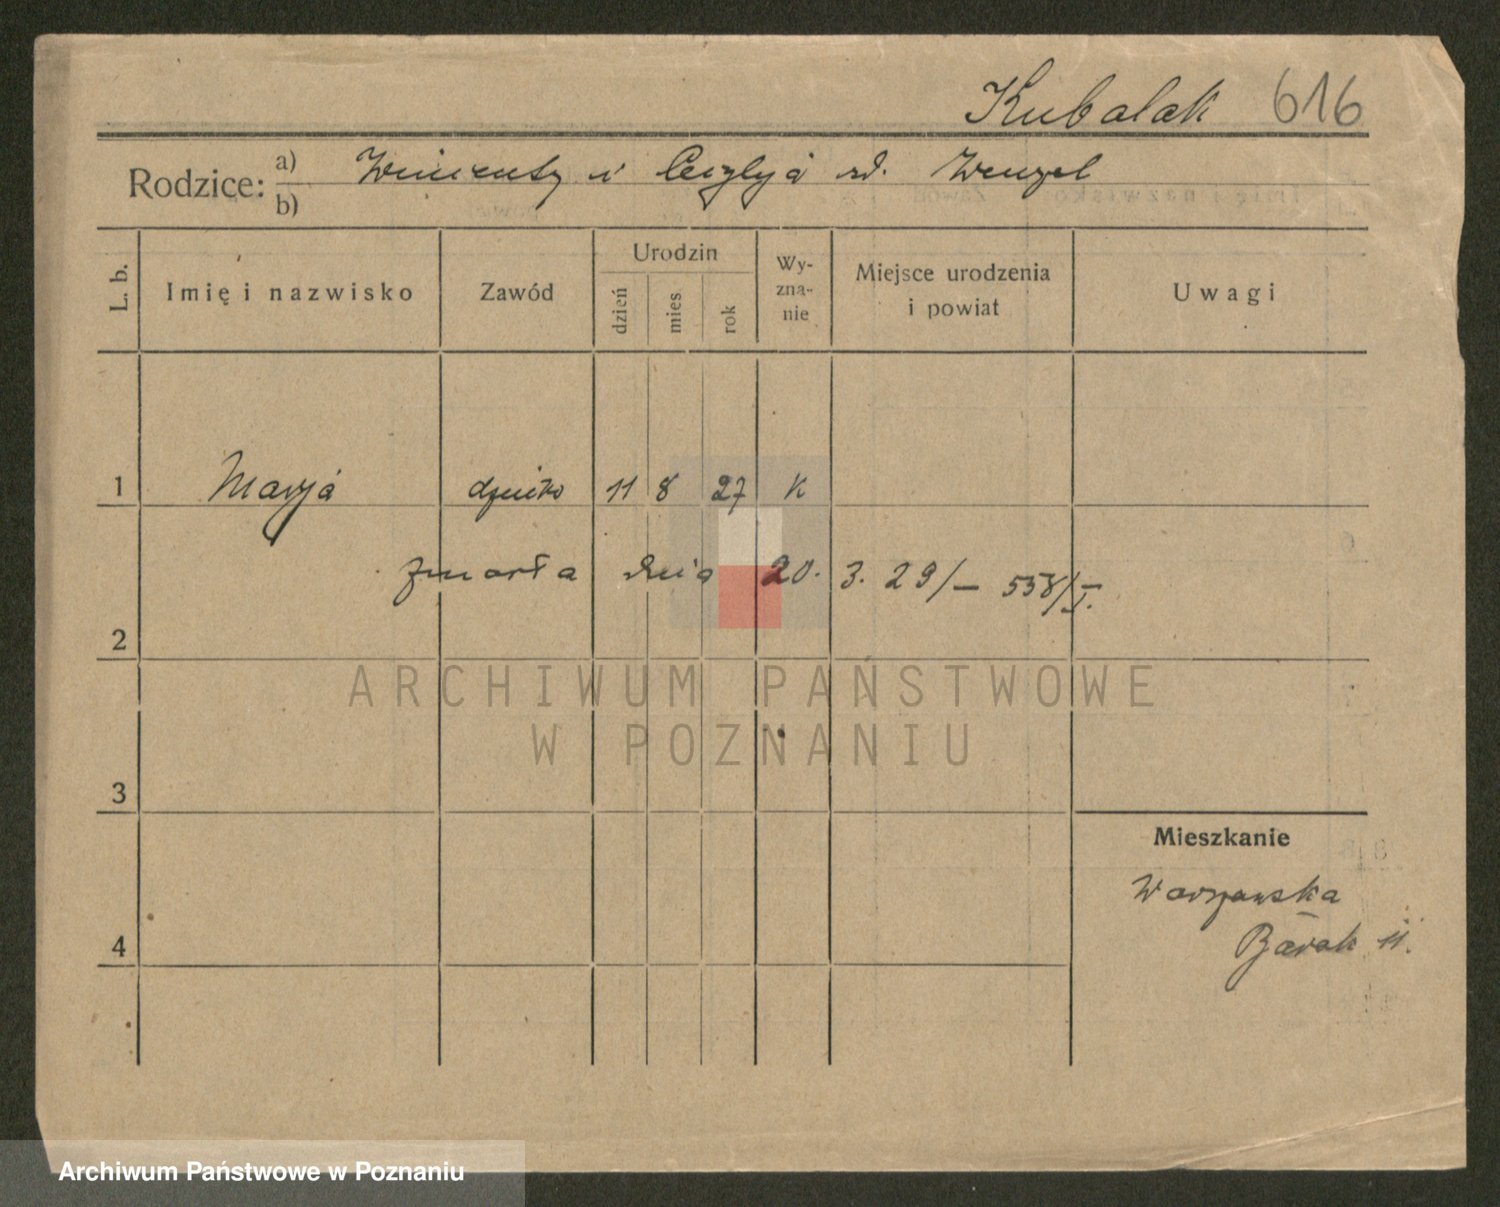 Kubalak 616
Rodzice: a) Wincenty i Cecylja rd. Wenzel
b)
L. b. Imię i nazwisko Zawód Urodzin Wyzna- Miejsce urodzenia Uwagi
dzień mies. rok nie i powiat
1 Maryja dziecko 11 8 27 K
zmarła dnia 20. 3. 29/— 558/I.
2
ARCHIWUM PAŃSTWOWE
W POZNANIU
3
Mieszkanie
Warszawska
4 Barak 11.
Archiwum Państwowe w Poznaniu